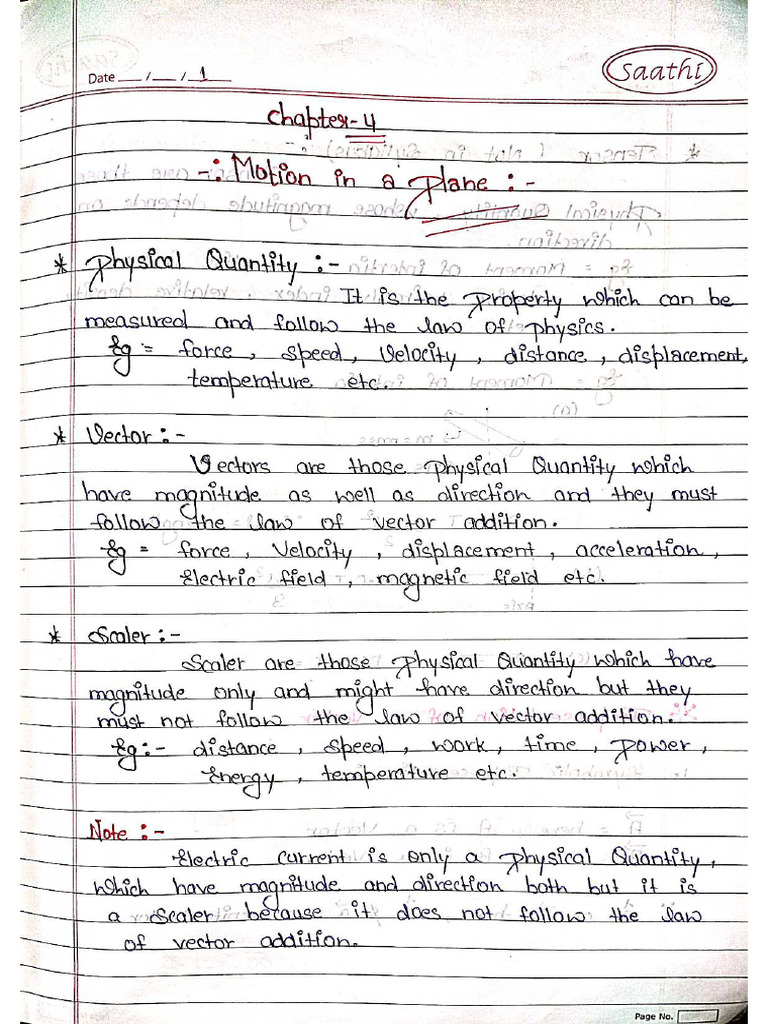 Date __/__/ 1
Saathi
Chapter-4
-: Motion in a Plane :-
* Physical Quantity :-
It is the Property which can be
measured and follow the law of physics.
Eg = force, speed, Velocity, distance, displacement,
temperature etc.
* Vector :-
Vectors are those Physical Quantity which
have magnitude as well as direction and they must
follow the law of vector addition.
Eg = force, Velocity, displacement, acceleration,
Electric field, magnetic field etc.
* Scaler :-
Scaler are those Physical Quantity which have
magnitude only and might have direction but they
must not follow the law of vector addition.
Eg :- distance, speed, work, time, Power,
Energy, temperature etc.
Note :-
Electric current is only a Physical Quantity,
which have magnitude and direction both but it is
a scaler because it does not follow the law
of vector addition.
Page No.